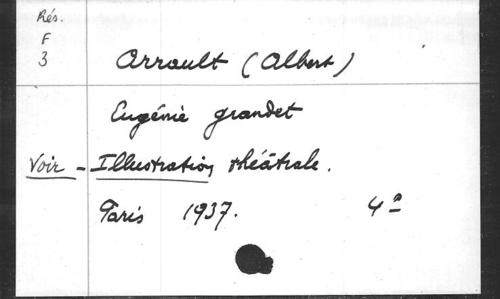 Rés.
F
3
Arrault (Albert)
Eugénie grandet
Voir - Illustration théâtrale.
Paris 1937. 4º